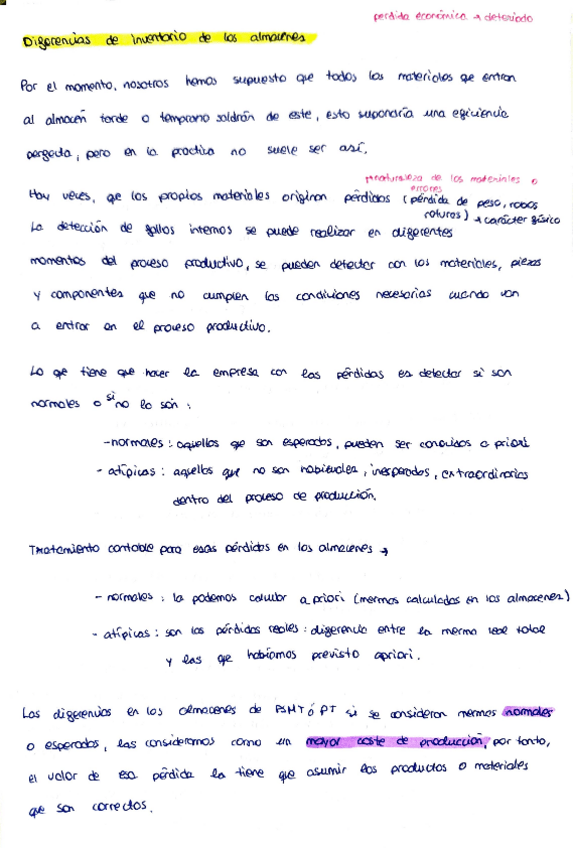 perdida económica → deteriodo
Digerencias de inventario de los almacenes
Por el momento, nosotros hemos supuesto que todos los materiales qe entran
al almacén tarde o temprano saldrán de este, esto supondría una egiciencia
pergecta, pero en la practica no suele ser así.
naturaleza de los materiales o
errores
Hay veces, qe los propios materiales originan pérdidas (pérdida de peso, robos
roturas) → carácter gísico
La detección de gallos internos se puede realizar en digerentes
momentos del proceso productivo, se pueden detectar con los materiales, piezas
y componentes que no cumplen las condiciones necesarias cuando van
a entrar en el proceso productivo.
Lo qe tiene que hacer la empresa con las pérdidas es detectar si son
normales o si no lo són :
- normales : aquellos qe son esperados, pueden ser conocidos a priori
- atípicas : aquellas que no son habituales, inesperados, extraordinarios
dentro del proceso de producción.
Tratamiento contable para esas pérdidas en los almacenes →
- normales : la podemos calcular a priori (mermas calculadas en los almacenes)
- atípicas : son las pérdidas reales : digerencia entre la merma real total
y las qe habíamos previsto apriori.
Las digerencias en los almacenes de PSMT ó PT si se consideran mermas normales
o esperados, las consideramos como un mayor coste de producción, por tanto,
el valor de esa pérdida la tiene que asumir los productos o materiales
que son correctos.